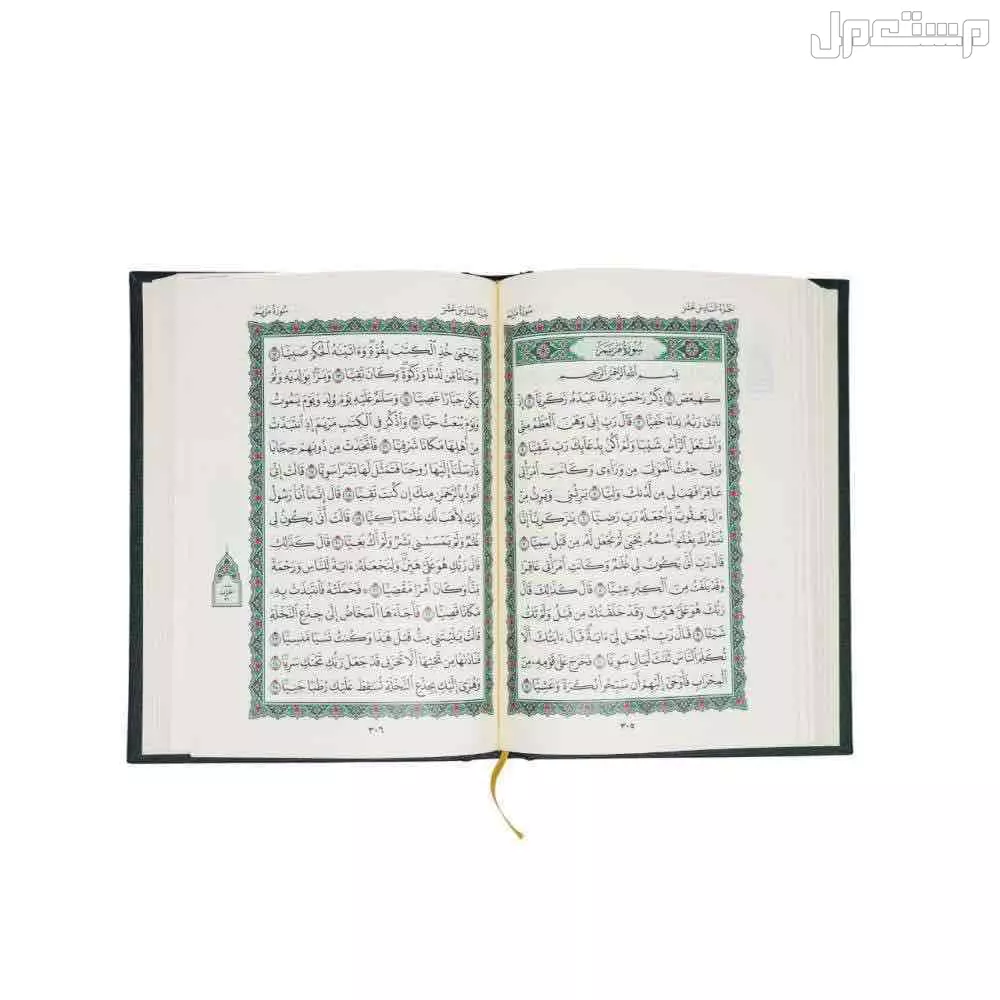 مستعمل
الجزء السادس عشر
سورة مريم
سُورَةُ مَرْيَمَ
بِسْمِ ٱللَّهِ ٱلرَّحْمَٰنِ ٱلرَّحِيمِ
كٓهيعٓصٓ ١ ذِكْرُ رَحْمَتِ رَبِّكَ عَبْدَهُۥ زَكَرِيَّآ ٢ إِذْ
نَادَىٰ رَبَّهُۥ نِدَآءً خَفِيًّا ٣ قَالَ رَبِّ إِنِّي وَهَنَ ٱلْعَظْمُ مِنِّي
وَٱشْتَعَلَ ٱلرَّأْسُ شَيْبًا وَلَمْ أَكُنۢ بِدُعَآئِكَ رَبِّ شَقِيًّا ٤
وَإِنِّي خِفْتُ ٱلْمَوَٰلِيَ مِن وَرَآءِي وَكَانَتِ ٱمْرَأَتِي
عَاقِرًا فَهَبْ لِي مِن لَّدُنكَ وَلِيًّا ٥ يَرِثُنِي وَيَرِثُ مِنْ
ءَالِ يَعْقُوبَ وَٱجْعَلْهُ رَبِّ رَضِيًّا ٦ يَٰزَكَرِيَّآ إِنَّا
نُبَشِّرُكَ بِغُلَٰمٍ ٱسْمُهُۥ يَحْيَىٰ لَمْ نَجْعَل لَّهُۥ مِن قَبْلُ سَمِيًّا ٧
قَالَ رَبِّ أَنَّىٰ يَكُونُ لِي غُلَٰمٌ وَكَانَتِ ٱمْرَأَتِي عَاقِرًا
وَقَدْ بَلَغْتُ مِنَ ٱلْكِبَرِ عِتِيًّا ٨ قَالَ كَذَٰلِكَ قَالَ
رَبُّكَ هُوَ عَلَيَّ هَيِّنٌ وَقَدْ خَلَقْتُكَ مِن قَبْلُ وَلَمْ تَكُ
شَيْئًا ٩ قَالَ رَبِّ ٱجْعَل لِّي ءَايَةً قَالَ ءَايَتُكَ أَلَّا
تُكَلِّمَ ٱلنَّاسَ ثَلَٰثَ لَيَالٍ سَوِيًّا ١٠ فَخَرَجَ عَلَىٰ قَوْمِهِۦ مِنَ
ٱلْمِحْرَابِ فَأَوْحَىٰٓ إِلَيْهِمْ أَن سَبِّحُوا۟ بُكْرَةً وَعَشِيًّا ١١
٣٠٥
الجزء السادس عشر
سورة مريم
يَٰيَحْيَىٰ خُذِ ٱلْكِتَٰبَ بِقُوَّةٍ وَءَاتَيْنَٰهُ ٱلْحُكْمَ صَبِيًّا ١٢
وَحَنَانًا مِّن لَّدُنَّا وَزَكَوٰةً وَكَانَ تَقِيًّا ١٣ وَبَرًّۢا بِوَٰلِدَيْهِ وَلَمْ
يَكُن جَبَّارًا عَصِيًّا ١٤ وَسَلَٰمٌ عَلَيْهِ يَوْمَ وُلِدَ وَيَوْمَ يَمُوتُ
وَيَوْمَ يُبْعَثُ حَيًّا ١٥ وَٱذْكُرْ فِي ٱلْكِتَٰبِ مَرْيَمَ إِذِ ٱنتَبَذَتْ
مِنْ أَهْلِهَا مَكَانًا شَرْقِيًّا ١٦ فَٱتَّخَذَتْ مِن دُونِهِمْ حِجَابًا
فَأَرْسَلْنَآ إِلَيْهَا رُوحَنَا فَتَمَثَّلَ لَهَا بَشَرًا سَوِيًّا ١٧ قَالَتْ إِنِّيٓ
أَعُوذُ بِٱلرَّحْمَٰنِ مِنكَ إِن كُنتَ تَقِيًّا ١٨ قَالَ إِنَّمَآ أَنَا۠ رَسُولُ
رَبِّكِ لِأَهَبَ لَكِ غُلَٰمًا زَكِيًّا ١٩ قَالَتْ أَنَّىٰ يَكُونُ لِي
غُلَٰمٌ وَلَمْ يَمْسَسْنِي بَشَرٌ وَلَمْ أَكُ بَغِيًّا ٢٠ قَالَ كَذَٰلِكِ
قَالَ رَبُّكِ هُوَ عَلَيَّ هَيِّنٌ وَلِنَجْعَلَهُۥٓ ءَايَةً لِّلنَّاسِ وَرَحْمَةً
مِّنَّا وَكَانَ أَمْرًا مَّقْضِيًّا ٢١ فَحَمَلَتْهُ فَٱنتَبَذَتْ بِهِۦ
مَكَانًا قَصِيًّا ٢٢ فَأَجَآءَهَا ٱلْمَخَاضُ إِلَىٰ جِذْعِ ٱلنَّخْلَةِ
قَالَتْ يَٰلَيْتَنِي مِتُّ قَبْلَ هَٰذَا وَكُنتُ نَسْيًا مَّنسِيًّا ٢٣
فَنَادَىٰهَا مِن تَحْتِهَآ أَلَّا تَحْزَنِي قَدْ جَعَلَ رَبُّكِ تَحْتَكِ سَرِيًّا ٢٤
وَهُزِّيٓ إِلَيْكِ بِجِذْعِ ٱلنَّخْلَةِ تُسَٰقِطْ عَلَيْكِ رُطَبًا جَنِيًّا ٢٥
٣٠٦